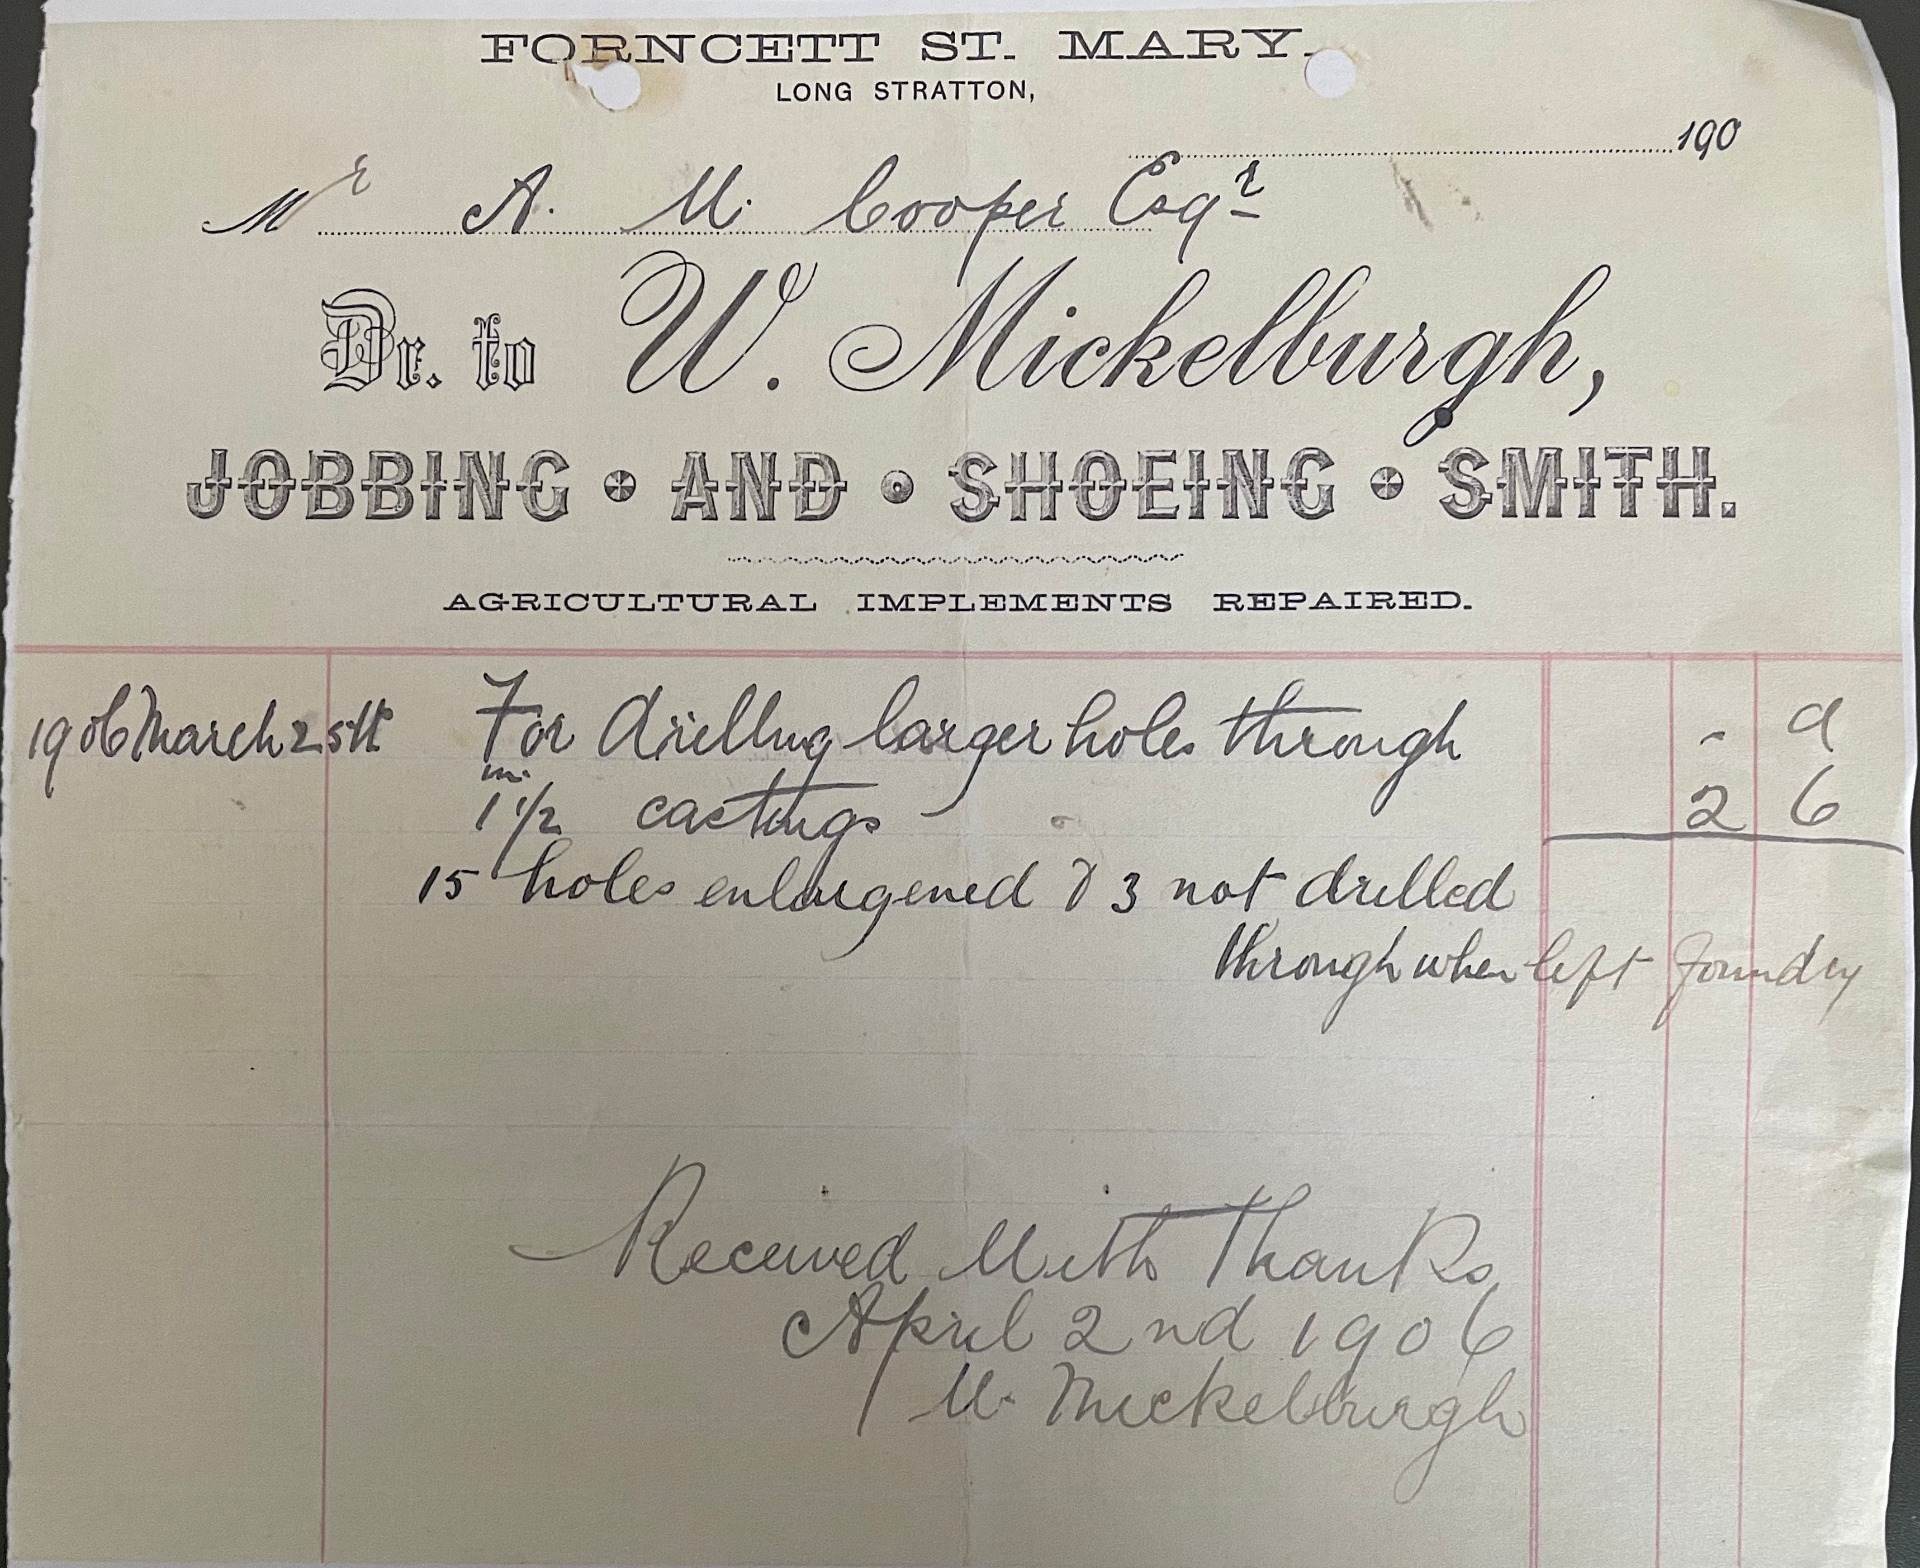 FORNCETT ST. MARY.
LONG STRATTON,
190
Mr A. W. Cooper Esqr
Dr. to W. Mickelburgh,
JOBBING AND SHOEING SMITH.
AGRICULTURAL IMPLEMENTS REPAIRED.
1906 March 25th For drilling larger holes through d
in. 1 1/2 castings 2 6
15 holes enlargened & 3 not drilled
through when left foundry
Received With Thanks
April 2nd 1906
W. Mickelburgh